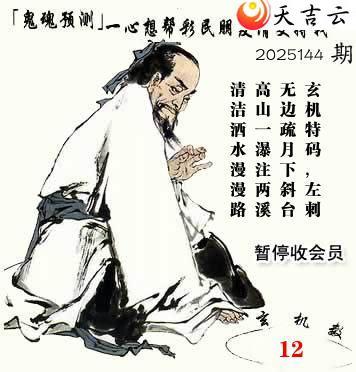 天吉云
「鬼魂预测」一心想帮彩民朋友
2025144 期
玄机特码，左刺
无边疏月下斜台
高山一瀑注两溪
清洁洒水漫漫路
暂停收会员
玄机数
12